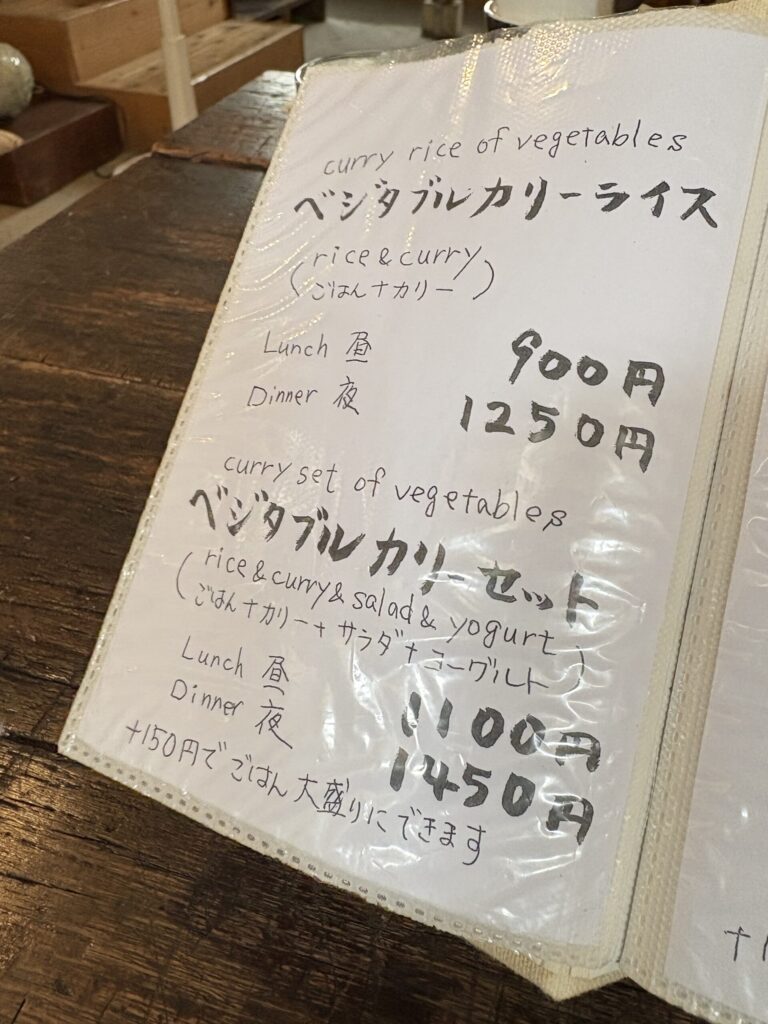 curry rice of vegetables
ベジタブルカリーライス
(rice & curry
ごはん+カリー)
Lunch 昼 900円
Dinner 夜 1250円
curry set of vegetables
ベジタブルカリーセット
(rice & curry & salad & yogurt
ごはん+カリー+サラダ+ヨーグルト)
Lunch 昼 1100円
Dinner 夜 1450円
+150円でごはん大盛りにできます